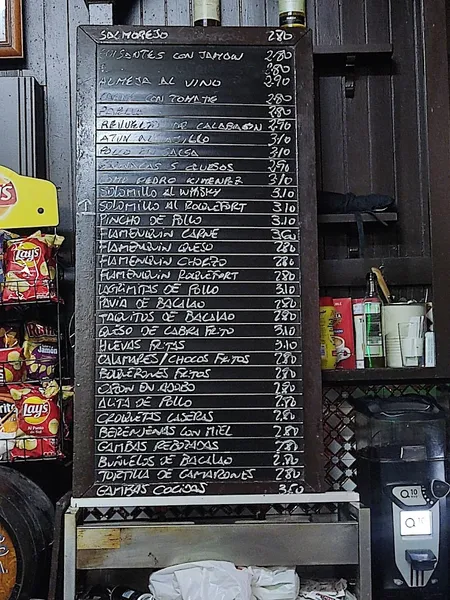 SALMOREJO 280
GUISANTES CON JAMON 280
280
ALMEJA AL VINO 290
CON TOMATE 280
280
REVUELTO DE CALABACIN 290
ATUN AL 310
POLLO SALSA 310
5 QUESOS 290
PEDRO XIMENEZ 310
SOLOMILLO AL WHISKY 310
SOLOMILLO AL ROQUEFORT 310
PINCHO DE POLLO 310
FLAMENQUIN CARNE 360
FLAMENQUIN QUESO 280
FLAMENQUIN CHORIZO 280
FLAMENQUIN ROQUEFORT 280
LAGRIMITAS DE POLLO 310
PAVIA DE BACALAO 280
TAQUITOS DE BACALAO 280
QUESO DE CABRA FRITO 310
HUEVAS FRITAS 310
CALAMARES/CHOCOS FRITOS 280
BOQUERONES FRITOS 280
CAZON EN ADOBO 280
ALITA DE POLLO 280
CROQUETAS CASERAS 280
BERENJENAS CON MIEL 280
GAMBAS REBOZADAS 280
BUÑUELOS DE BACALAO 280
TORTILLA DE CAMARONES 280
GAMBAS COCIDAS 360
Lay's
Jamón
Lay's
Q10